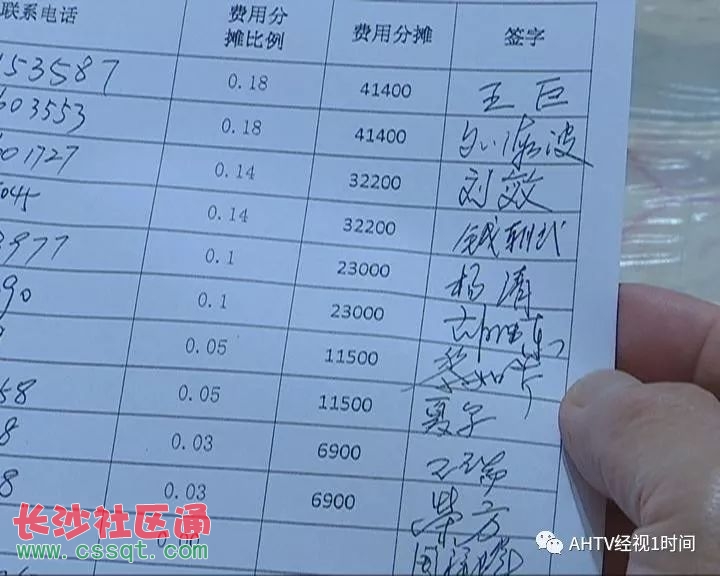 联系电话 费用分摊比例 费用分摊 签字
153587 0.18 41400 王巨
603553 0.18 41400
601727 0.14 32200 刘效
5045 0.14 32200 钱朝代
3977 0.1 23000 杨涛
90 0.1 23000
0.05 11500
58 0.05 11500 夏字
8 0.03 6900
8 0.03 6900 柴方
0.00
长沙社区通
www.cssqt.com
AHTV经视1时间